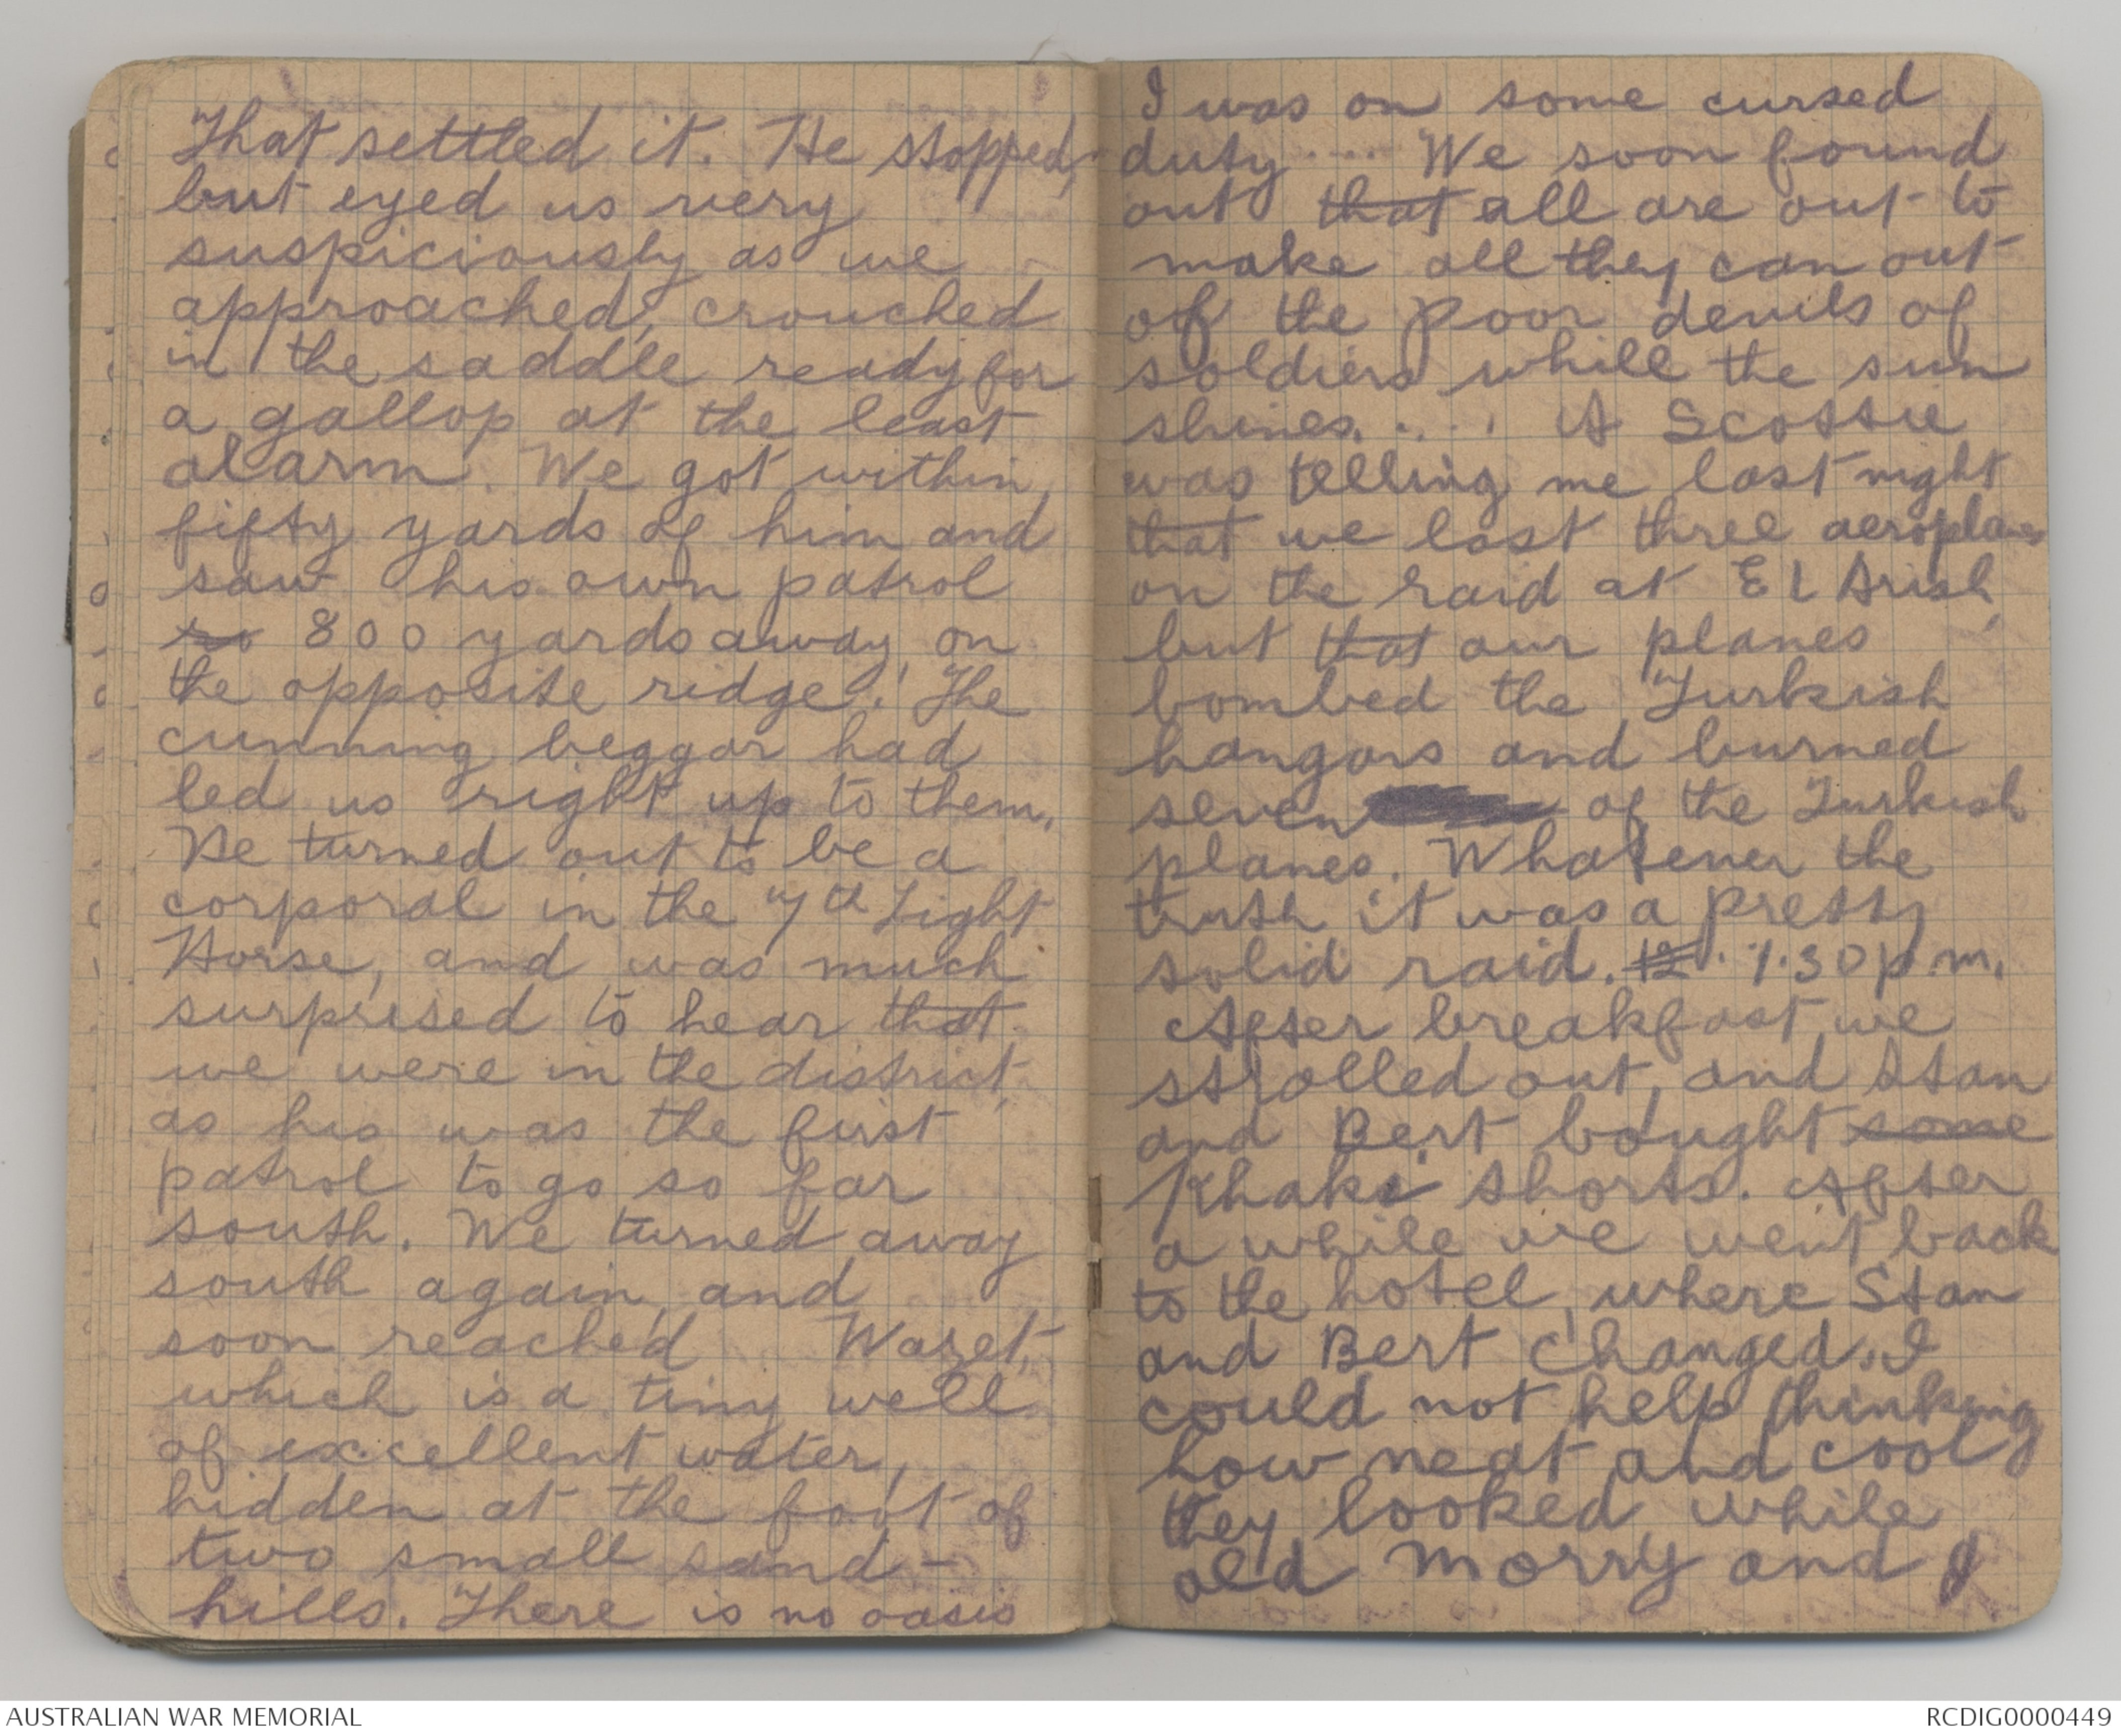 That settled it. He stopped,
but eyed us very
suspiciously as we
approached, crouched
in the saddle ready for
a gallop at the least
alarm. We got within
fifty yards of him and
saw his own patrol
so 800 yards away, on
the opposite ridge. The
cunning beggar had
led us right up to them.
He turned out to be a
corporal in the 7th Light
Horse, and was much
surprised to hear that
we were in the district,
as his was the first
patrol to go so far
south. We turned away
south again, and
soon reached Waset,
which is a tiny well
of excellent water,
hidden at the foot of
two small sand-
hills. There is no oasis
I was on some cursed
duty .... We soon found
out that all are out to
make all they can out
of the poor devils of
soldiers while the sun
shines. . . . A Scottie
was telling me last night
that we lost three aeroplanes
on the raid at El Arish,
but that our planes
bombed the Turkish
hangars and burned
seven of the Turkish
planes. Whatever the
truth it was a pretty
solid raid. 12. 1.30 p.m.
After breakfast we
strolled out, and Stan
and Bert bought some
Khaki shorts. After
a while we went back
to the hotel, where Stan
and Bert changed. I
could not help thinking
how neat and cool
they looked while
old Morry and I
AUSTRALIAN WAR MEMORIAL
RCDIG0000449